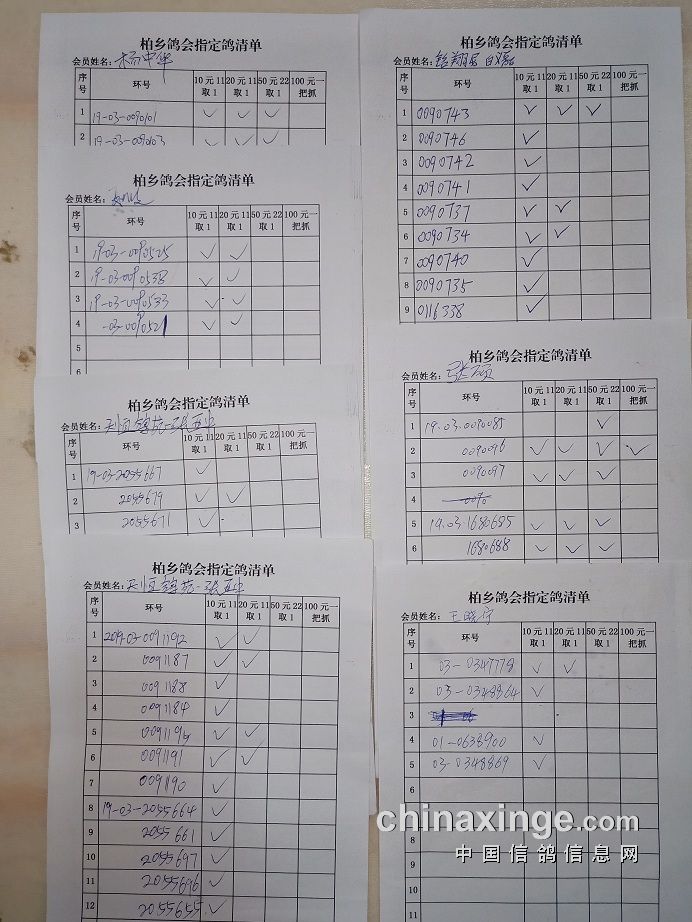 柏乡鸽会指定鸽清单
会员姓名: 杨中华
序号 环号 10元11取1 20元11取1 50元22取1 100元一把抓
1 19-03-0090101 ✓ ✓ ✓
2 19-03-0090103 ✓ ✓ ✓
柏乡鸽会指定鸽清单
会员姓名:
序号 环号 10元11取1 20元11取1 50元22取1 100元一把抓
1 19-03-0090525 ✓ ✓
2 19-03-0090538 ✓ ✓
3 19-03-0090533 ✓ ✓
4 -03-0090521 ✓ ✓
5
6
柏乡鸽会指定鸽清单
会员姓名: 天恒鸽苑-张五中
序号 环号 10元11取1 20元11取1 50元22取1 100元一把抓
1 19-03-2055667 ✓
2 2055679 ✓ ✓
3 2055671 ✓
柏乡鸽会指定鸽清单
会员姓名: 天恒鸽苑-张五中
序号 环号 10元11取1 20元11取1 50元22取1 100元一把抓
1 2019-03-0091192 ✓ ✓
2 0091187 ✓ ✓
3 0091188 ✓
4 0091184 ✓
5 0091194 ✓ ✓
6 0091191 ✓ ✓
7 0091190 ✓
8 19-03-2055664 ✓
9 2055661 ✓
10 2055697 ✓
11 2055696 ✓
12 2055655 ✓
柏乡鸽会指定鸽清单
会员姓名: 铭翔居
序号 环号 10元11取1 20元11取1 50元22取1 100元一把抓
1 0090743 ✓ ✓ ✓
2 0090746 ✓
3 0090742 ✓
4 0090741 ✓
5 0090737 ✓ ✓
6 0090734 ✓ ✓
7 0090740 ✓
8 0090735 ✓
9 0116338 ✓
柏乡鸽会指定鸽清单
会员姓名: 张硕
序号 环号 10元11取1 20元11取1 50元22取1 100元一把抓
1 19.03.0090085 ✓
2 0090096 ✓ ✓ ✓ ✓
3 0090097 ✓ ✓ ✓
4 0090
5 19.03.1680685 ✓ ✓ ✓
6 1680688 ✓ ✓ ✓
柏乡鸽会指定鸽清单
会员姓名: 王晓宇
序号 环号 10元11取1 20元11取1 50元22取1 100元一把抓
1 03-0347778 ✓ ✓
2 03-0348864 ✓
3
4 01-0638900 ✓
5 03-0348869 ✓
8
9
10
11
chinaxinge.com
中国信鸽信息网